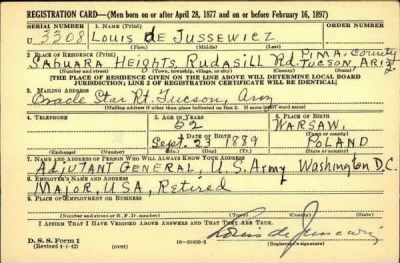 REGISTRATION CARD—(Men born on or after April 28, 1877 and on or before February 16, 1897)
SERIAL NUMBER
1. NAME (Print)
ORDER NUMBER
U 3308 Louis de Jussewicz
(First) (Middle) (Last)
2. PLACE OF RESIDENCE (Print)
Pima, County
Sabuara Heights, Rudasill Rd. Tucson, Ariz
(Number and street) (Town, township, village, or city) (County) (State)
[THE PLACE OF RESIDENCE GIVEN ON THE LINE ABOVE WILL DETERMINE LOCAL BOARD
JURISDICTION; LINE 2 OF REGISTRATION CERTIFICATE WILL BE IDENTICAL]
3. MAILING ADDRESS
Oracle Star Rt. Tucson, Ariz
[Mailing address if other than place indicated on line 2. If same insert word same]
4. TELEPHONE
5. AGE IN YEARS
52
DATE OF BIRTH
Sept. 23 1889
(Mo.) (Day) (Yr.)
6. PLACE OF BIRTH
Warsaw,
(Town or county)
Poland
(State or country)
(Exchange) (Number)
7. NAME AND ADDRESS OF PERSON WHO WILL ALWAYS KNOW YOUR ADDRESS
Adjutant General, U.S. Army Washington D.C.
8. EMPLOYER'S NAME AND ADDRESS
Major, USA, Retired
9. PLACE OF EMPLOYMENT OR BUSINESS
(Number and street or R. F. D. number) (Town) (County) (State)
I AFFIRM THAT I HAVE VERIFIED ABOVE ANSWERS AND THAT THEY ARE TRUE.
D. S. S. Form 1
(Revised 4-1-42) (over)
(Registrant's signature)